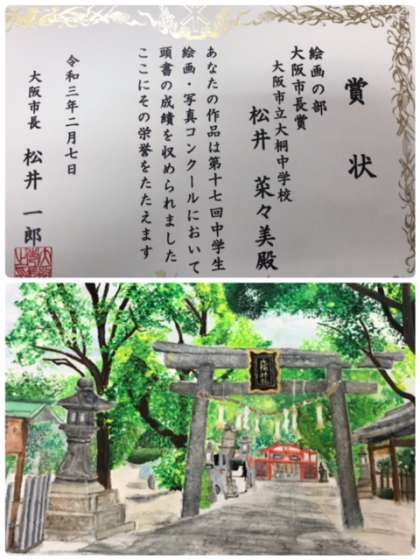 賞状
絵画の部
大阪市長賞
大阪市立大桐中学校
松井 菜々美殿
あなたの作品は第十七回中学生
絵画・写真コンクールにおいて
頭書の成績を収められました
ここにその栄誉をたたえます
令和三年二月七日
大阪市長 松井 一郎